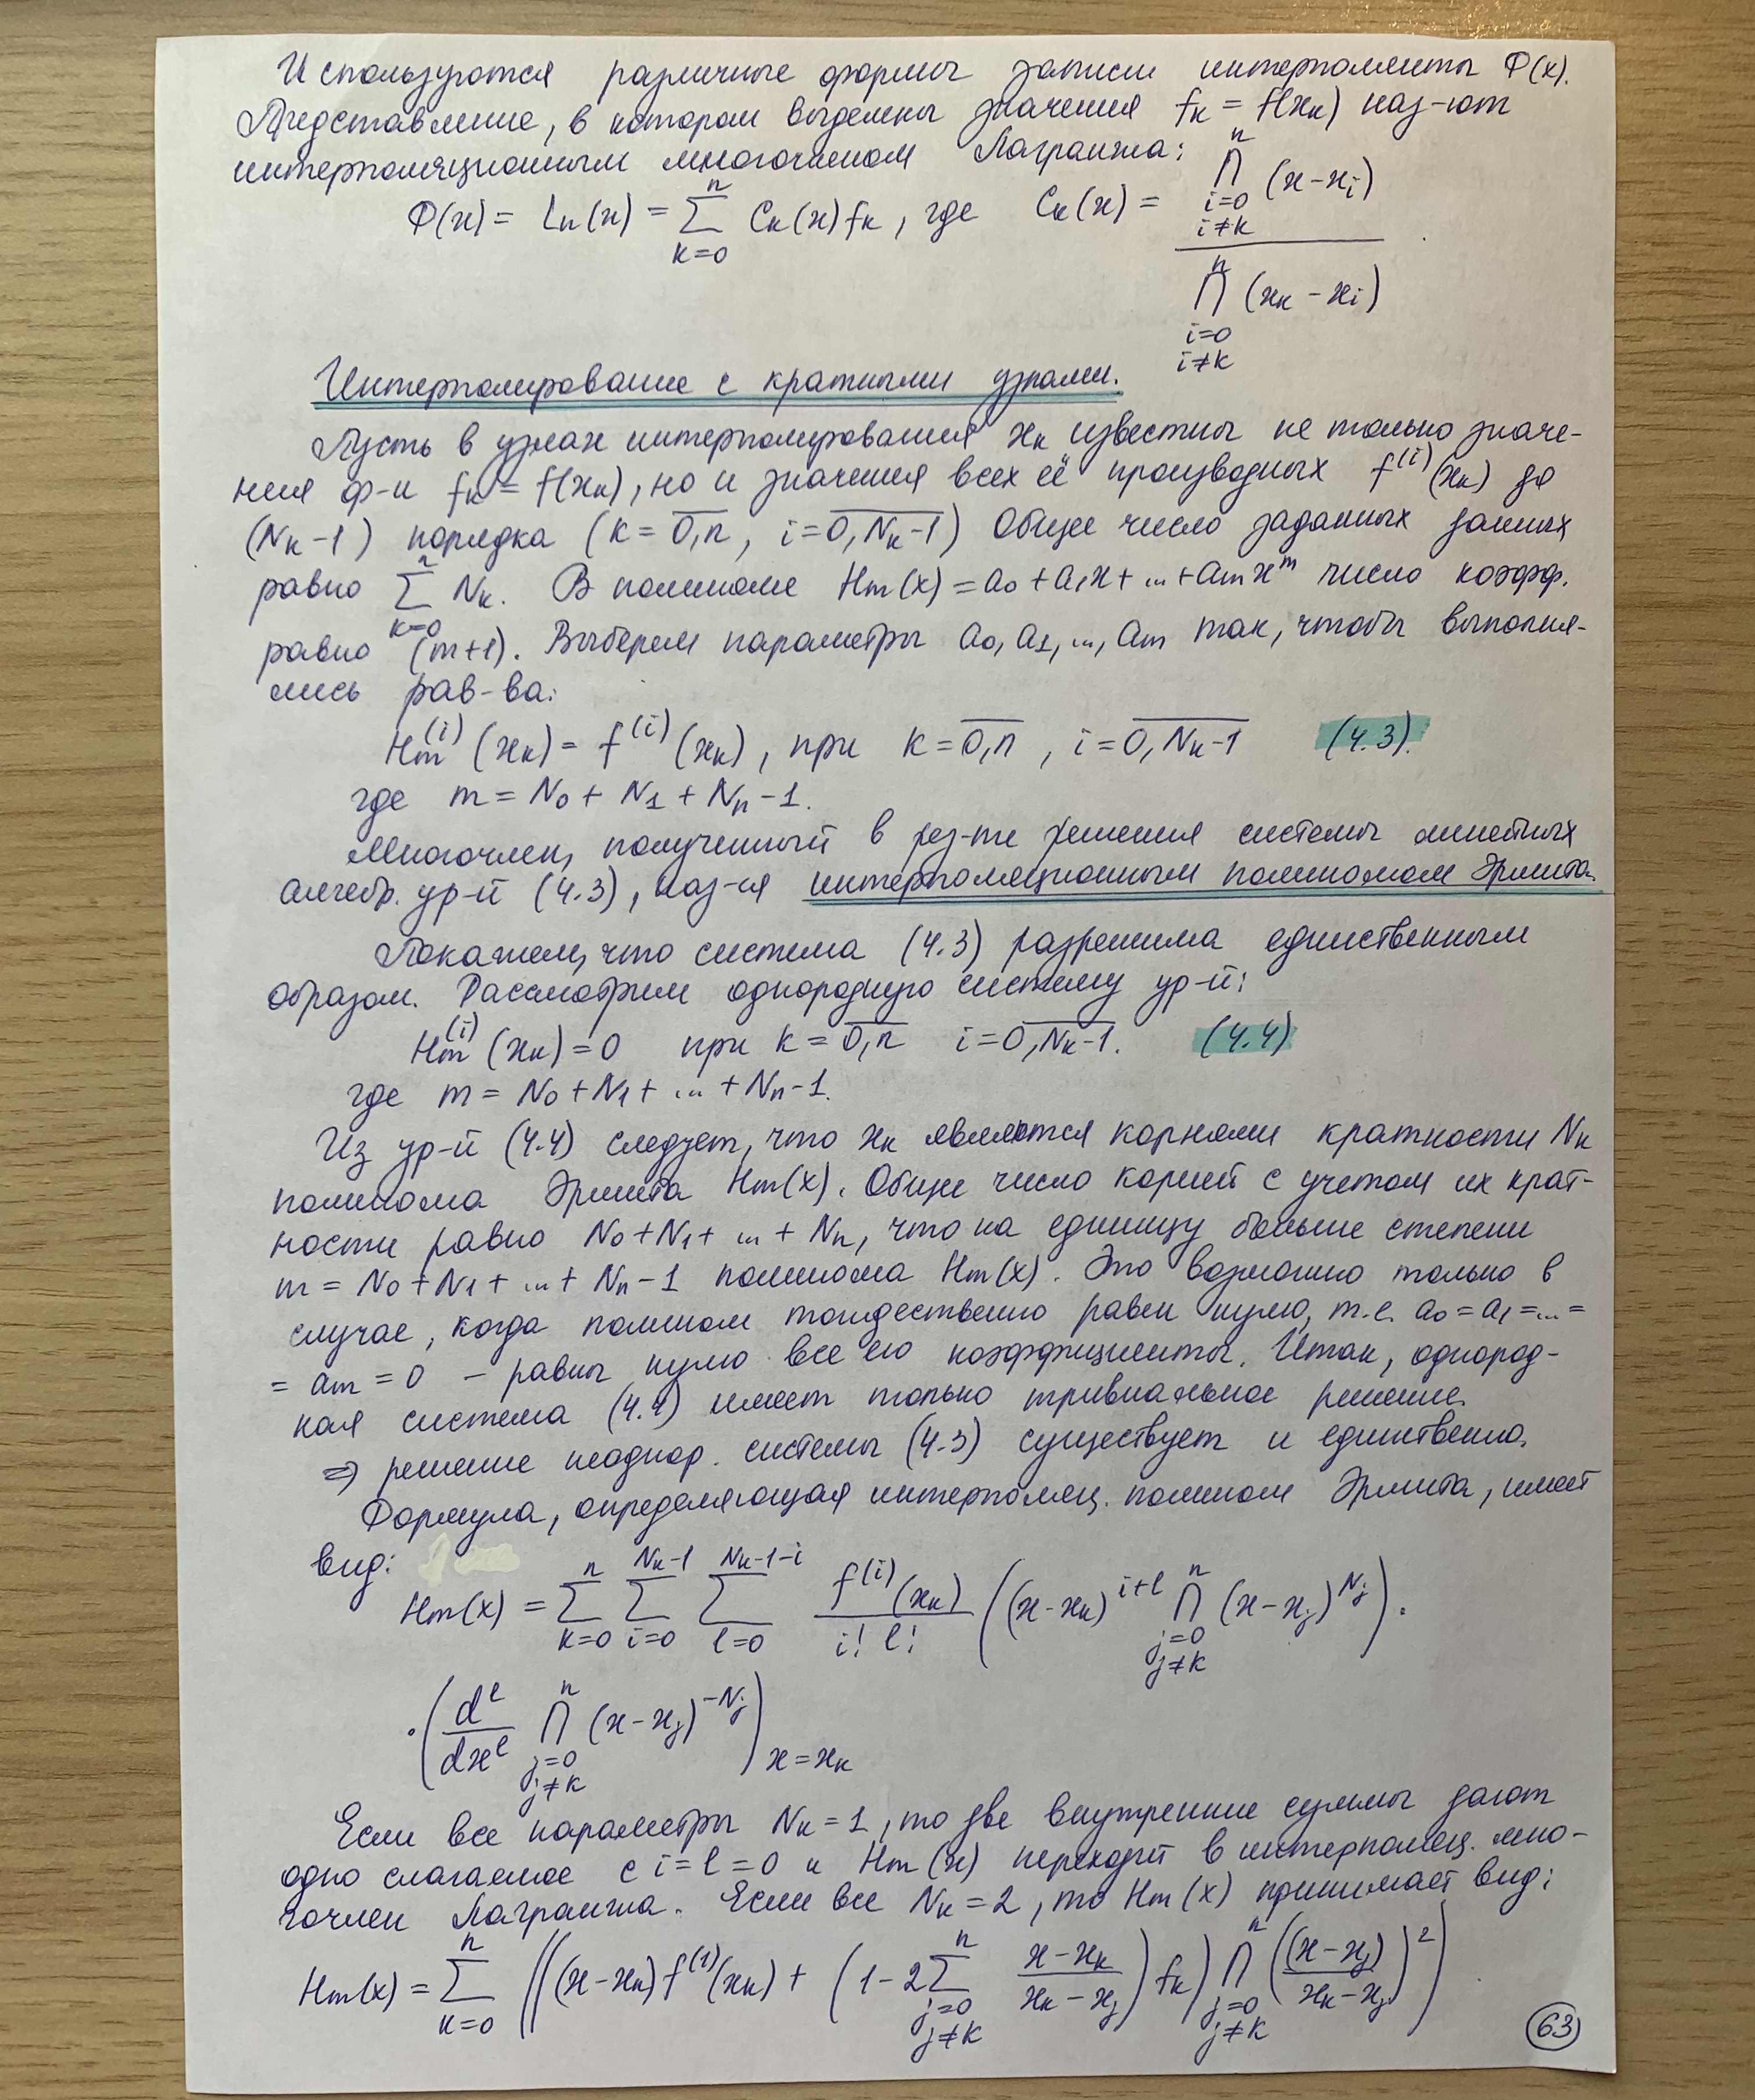 Используются различные формы записи интерполянты Ф(x).
Представление, в котором выделены значения fₖ = f(xₖ) наз-ют
интерполяционным многочленом Лагранжа:
Ф(x) = Lₙ(x) = ∑_{k=0}^{n} Cₖ(x) fₖ, где Cₖ(x) = \frac{∏_{i=0, i≠k}^{n} (x-xᵢ)}{∏_{i=0, i≠k}^{n} (xₖ-xᵢ)}
Интерполирование с кратными узлами.
Пусть в узлах интерполирования xₖ известны не только значе-
ния ф-и fₖ = f(xₖ), но и значения всех её производных f^{(i)}(xₖ) до
(Nₖ-1) порядка (k = \overline{0,n}, i = \overline{0, Nₖ-1}) Общее число заданных данных
равно ∑_{k=0}^{n} Nₖ. В полиноме Hₘ(x) = a₀ + a₁x + ... + aₘxᵐ число коэфф.
равно (m+1). Выберем параметры a₀, a₁, ..., aₘ так, чтобы выполня-
лись рав-ва:
Hₘ^{(i)}(xₖ) = f^{(i)}(xₖ), при k = \overline{0,n}, i = \overline{0, Nₖ-1} (4.3).
где m = N₀ + N₁ + Nₙ - 1.
Многочлен, полученный в рез-те решения системы линейных
алгебр. ур-й (4.3), наз-ся интерполяционным полиномом Эрмита.
Покажем, что система (4.3) разрешима единственным
образом. Рассмотрим однородную систему ур-й:
Hₘ^{(i)}(xₖ) = 0 при k = \overline{0,n} i = \overline{0, Nₖ-1}. (4.4)
где m = N₀ + N₁ + ... + Nₙ - 1.
Из ур-й (4.4) следует, что xₖ являются корнями кратности Nₖ
полинома Эрмита Hₘ(x). Общее число корней с учетом их крат-
ности равно N₀ + N₁ + ... + Nₙ, что на единицу больше степени
m = N₀ + N₁ + ... + Nₙ - 1 полинома Hₘ(x). Это возможно только в
случае, когда полином тождественно равен нулю, т.е. a₀ = a₁ = ... =
= aₘ = 0 – равны нулю все его коэффициенты. Итак, однород-
ная система (4.4) имеет только тривиальное решение.
⇒ решение неоднор. системы (4.3) существует и единственно.
Формула, определяющая интерполяц. полином Эрмита, имеет
вид:
Hₘ(x) = ∑_{k=0}^{n} ∑_{i=0}^{Nₖ-1} ∑_{l=0}^{Nₖ-1-i} \frac{f^{(i)}(xₖ)}{i! l!} ((x-xₖ)^{i+l} ∏_{j=0, j≠k}^{n} (x-xⱼ)^{Nⱼ}) ·
· (\frac{d^l}{dx^l} ∏_{j=0, j≠k}^{n} (x-xⱼ)^{-Nⱼ})_{x=xₖ}
Если все параметры Nₖ = 1, то две внутренние суммы дают
одно слагаемое с i = l = 0 и Hₘ(x) переходит в интерполяц. мно-
гочлен Лагранжа. Если все Nₖ = 2, то Hₘ(x) принимает вид:
Hₘ(x) = ∑_{k=0}^{n} (((x-xₖ) f^{(1)}(xₖ) + (1 - 2∑_{j=0, j≠k}^{n} \frac{x-xₖ}{xₖ-xⱼ}) fₖ) ∏_{j=0, j≠k}^{n} (\frac{(x-xⱼ)}{xₖ-xⱼ})²)
63